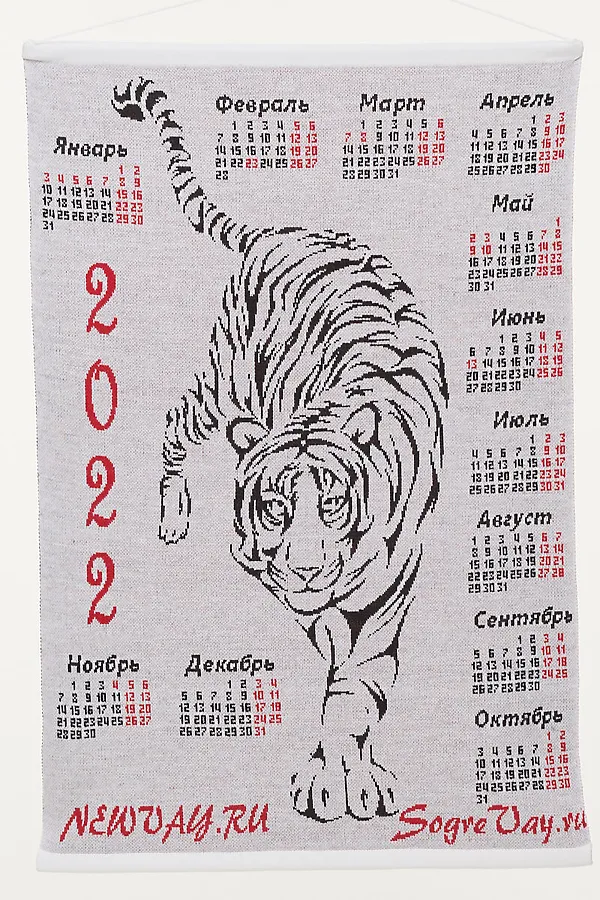 Январь
1 2
3 4 5 6 7 8 9
10 11 12 13 14 15 16
17 18 19 20 21 22 23
24 25 26 27 28 29 30
31
Февраль
1 2 3 4 5 6
7 8 9 10 11 12 13
14 15 16 17 18 19 20
21 22 23 24 25 26 27
28
Март
1 2 3 4 5 6
7 8 9 10 11 12 13
14 15 16 17 18 19 20
21 22 23 24 25 26 27
28 29 30 31
Апрель
1 2 3
4 5 6 7 8 9 10
11 12 13 14 15 16 17
18 19 20 21 22 23 24
25 26 27 28 29 30
Май
1
2 3 4 5 6 7 8
9 10 11 12 13 14 15
16 17 18 19 20 21 22
23 24 25 26 27 28 29
30 31
Июнь
1 2 3 4 5
6 7 8 9 10 11 12
13 14 15 16 17 18 19
20 21 22 23 24 25 26
27 28 29 30
Июль
1 2 3
4 5 6 7 8 9 10
11 12 13 14 15 16 17
18 19 20 21 22 23 24
25 26 27 28 29 30 31
Август
1 2 3 4 5 6 7
8 9 10 11 12 13 14
15 16 17 18 19 20 21
22 23 24 25 26 27 28
29 30 31
Сентябрь
1 2 3 4
5 6 7 8 9 10 11
12 13 14 15 16 17 18
19 20 21 22 23 24 25
26 27 28 29 30
Октябрь
1 2
3 4 5 6 7 8 9
10 11 12 13 14 15 16
17 18 19 20 21 22 23
24 25 26 27 28 29 30
31
Ноябрь
1 2 3 4 5 6
7 8 9 10 11 12 13
14 15 16 17 18 19 20
21 22 23 24 25 26 27
28 29 30
Декабрь
1 2 3 4
5 6 7 8 9 10 11
12 13 14 15 16 17 18
19 20 21 22 23 24 25
26 27 28 29 30 31
2
0
2
2
NEWVAY.RU
SogreVay.ru